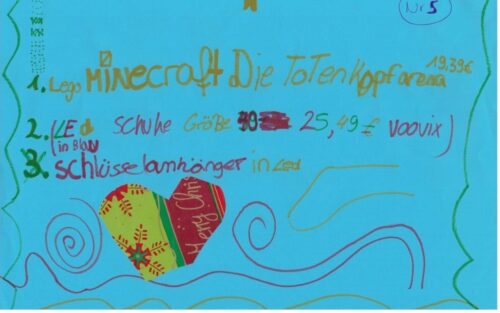 Nr 5
19,39€
1. Lego MiNecraft Die ToTenkopfarena
2. (LED SCHUHE Größe 25,49€ voovix)
(in Blau
3. Schlüsselanhänger in Led